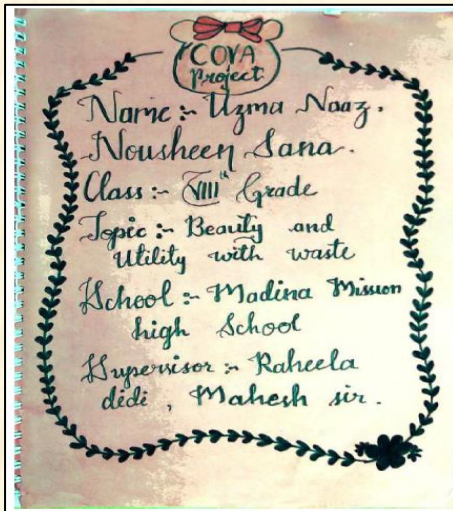 COVA
Project
Name :- Uzma Naaz.
Nousheen Sana.
Class :- VIIIth Grade
Topic :- Beauty and
Utility with waste
School :- Madina Mission
high School
Supervisor :- Raheela
didi, Mahesh sir.